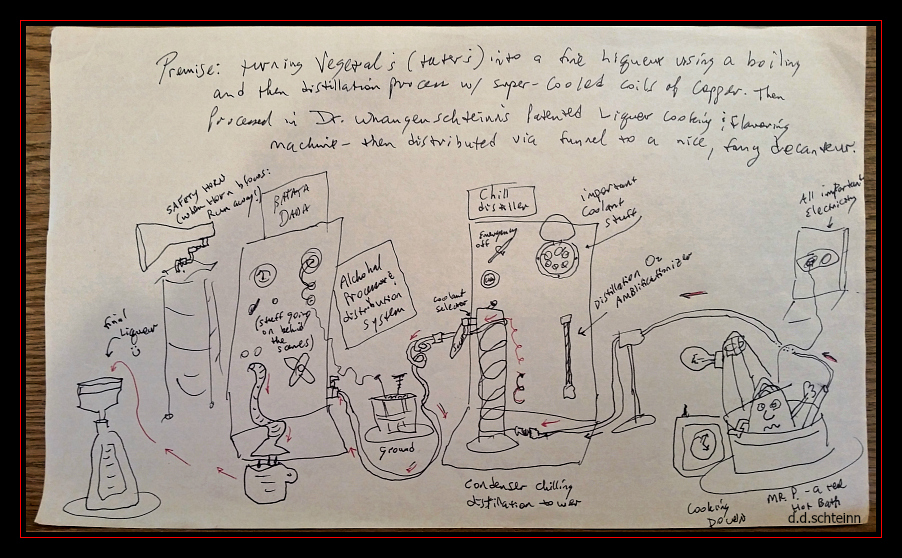 Premise: turning Vegetal's (taters) into a fine Liqueur using a boiling
and then distillation process w/ super-cooled coils of Copper. Then
Processed in Dr. Whangenschteinn's Patented Liquer Cooking & flavoring
machine - then distributed via funnel to a nice, fancy decanteur.
SAFETY HORN
(when Horn blows:
Run away!)
BHATA
DADA
Chill
distiller
important
Coolant
stuff
All important
Electricity
Emergency
off
Alcohol
Process &
distribution
System
Distillation O2
Amblificationizer
coolant
selector
final
Liqueur
(stuff going
on behind
the scenes)
ground
Condenser chilling
distillation tower
Cooking
MR. P. - a red
Hot Bath
d.d.schteinn